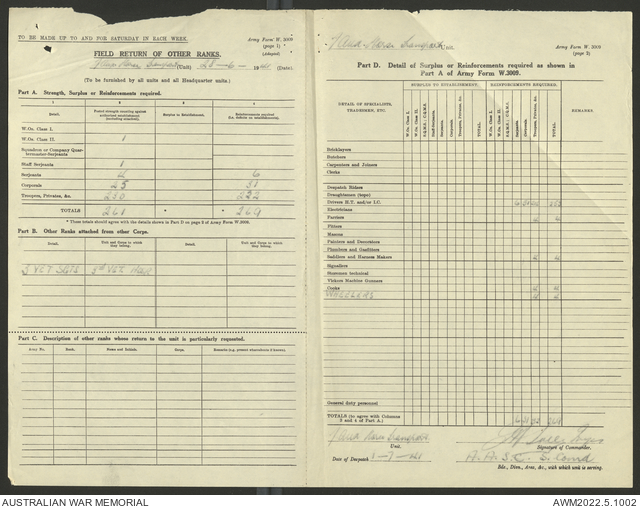 TO BE MADE UP TO AND FOR SATURDAY IN EACH WEEK.
Army Form W. 3009
(page 1)
(Adapted)
FIELD RETURN OF OTHER RANKS.
(Unit) 28-6-1941 (Date)
(To be furnished by all units and all Headquarter units.)
Part A. Strength, Surplus or Reinforcements required.
1 2 3 4
Detail. Posted strength counting against authorized establishment (excluding attached). Surplus to Establishment. Reinforcements required
W.Os. Class I.
W.Os. Class II. 1
Squadron or Company Quarter-
master-Serjeants
Staff Serjeants 1
Serjeants 4 6
Corporals 25 31
Troopers, Privates, &c. 230 232
TOTALS 261 * * 269
* These totals should agree with the details shown in Part D on page 2 of Army Form W.3009.
Part B. Other Ranks attached from other Corps.
Detail. Unit and Corps to which they belong. Detail. Unit and Corps to which they belong.
3 VET SGTS 3rd VET HOSP
Part C. Description of other ranks whose return to the unit is particularly requested.
Army No. Rank. Name and Initials. Corps. Remarks (e.g. present whereabouts if known).
Unit.
Army Form W. 3009
(page 2)
Part D. Detail of Surplus or Reinforcements required as shown in
Part A of Army Form W.3009.
DETAIL OF SPECIALISTS, TRADESMEN, ETC. SURPLUS TO ESTABLISHMENT. REINFORCEMENTS REQUIRED. REMARKS.
W.Os. Class I. W.Os. Class II. S.Q.M.S.; C.Q.M.S. Staff-Serjeants. Serjeants. Corporals. Troopers, Privates, &c. TOTAL. W.Os. Class I. W.Os. Class II. S.Q.M.S.; C.Q.M.S. Serjeants. Corporals. Troopers, Privates, &c. TOTAL.
Bricklayers
Butchers
Carpenters and Joiners
Clerks
Despatch Riders
Draughtsmen (topo)
Drivers H.T. and/or I.C.
Electricians
Farriers 4 4
Fitters
Masons
Painters and Decorators
Plumbers and Gasfitters
Saddlers and Harness Makers 4 4
Signallers
Storemen technical
Vickers Machine Gunners
Cooks 4 4
WHEELERS 4 4
General duty personnel
TOTALS (to agree with Columns
3 and 4 of Part A.) 6 31 232 269
Unit.
Signature of Commander.
Date of Despatch 1-7-41
A.A.S.C. S. Comd
Bde., Divn., Area, &c., with which unit is serving.
AUSTRALIAN WAR MEMORIAL
AWM2022.5.1002